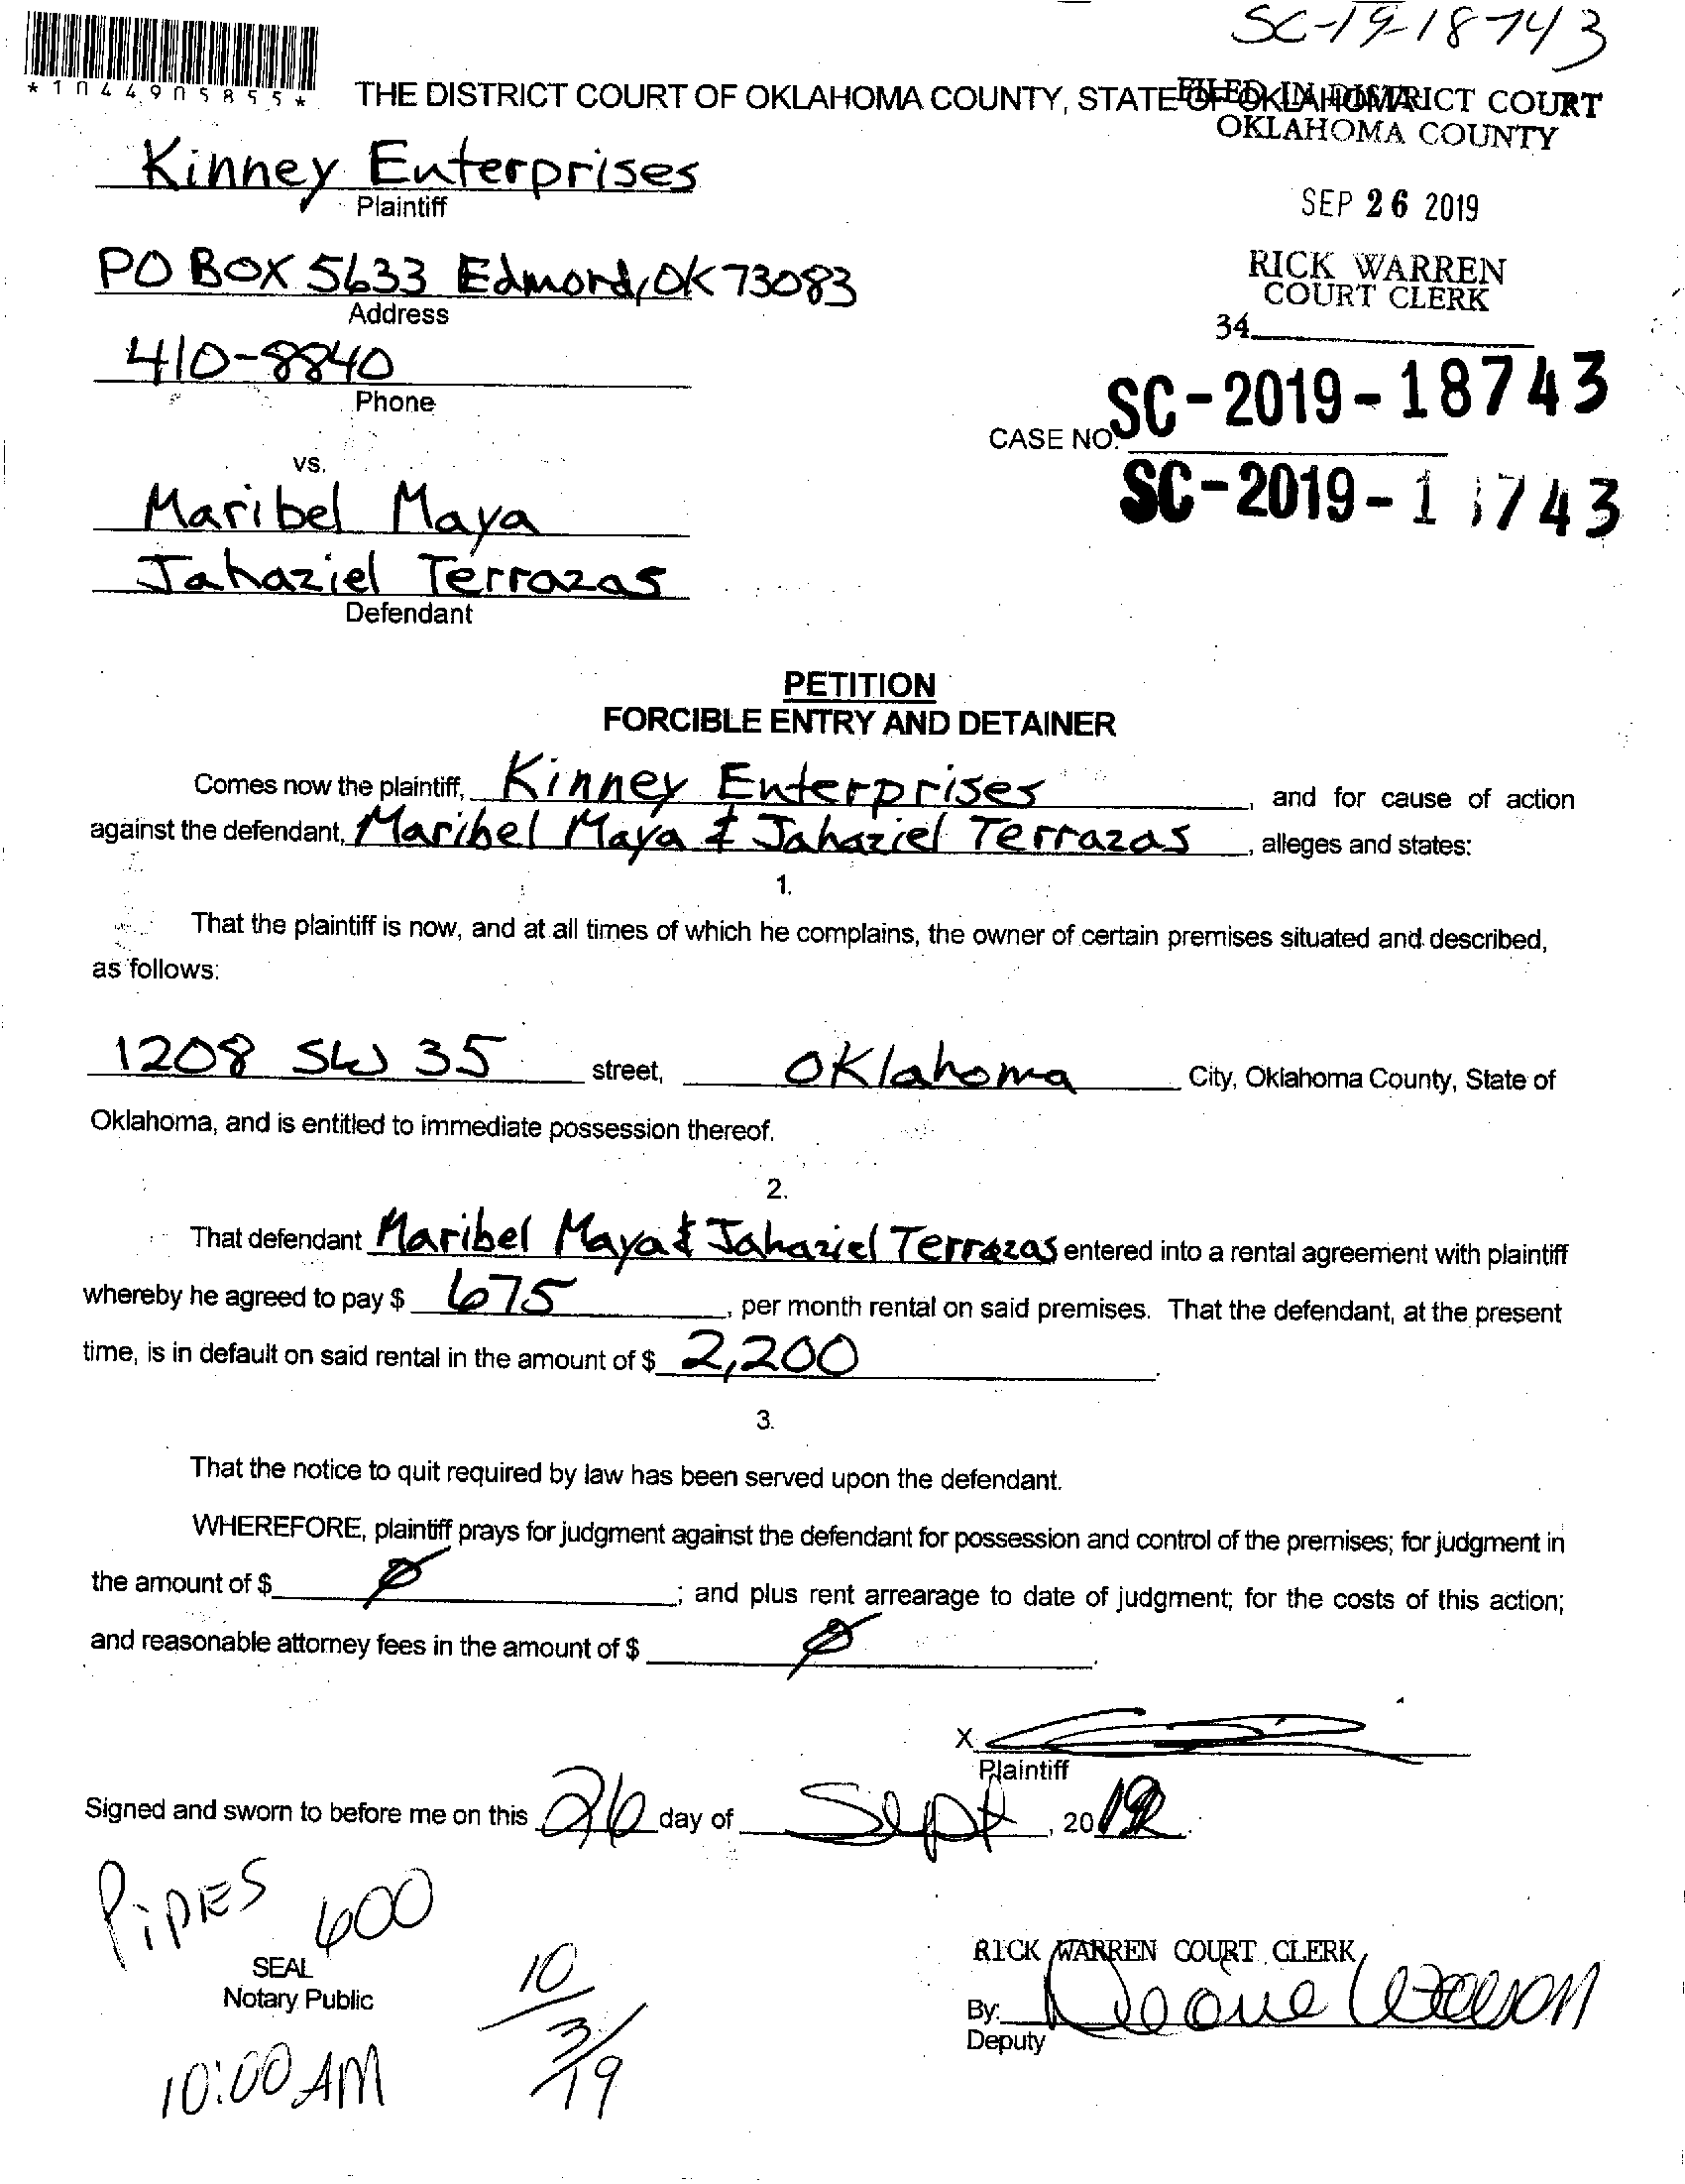 SC-19-18743
*1044905855*
THE DISTRICT COURT OF OKLAHOMA COUNTY, STATE OF OKLAHOMA
FILED IN DISTRICT COURT
OKLAHOMA COUNTY
Kinney Enterprises
Plaintiff
SEP 26 2019
PO BOX 5633 Edmond, OK 73083
Address
RICK WARREN
COURT CLERK
34
410-8840
Phone
CASE NO. SC-2019-18743
SC-2019-1 743
vs.
Maribel Maya
Jahaziel Terrazas
Defendant
PETITION
FORCIBLE ENTRY AND DETAINER
Comes now the plaintiff, Kinney Enterprises, and for cause of action
against the defendant, Maribel Maya & Jahaziel Terrazas, alleges and states:
1.
That the plaintiff is now, and at all times of which he complains, the owner of certain premises situated and described,
as follows:
1208 SW 35 street, Oklahoma City, Oklahoma County, State of
Oklahoma, and is entitled to immediate possession thereof.
2.
That defendant Maribel Maya & Jahaziel Terrazas entered into a rental agreement with plaintiff
whereby he agreed to pay $ 675, per month rental on said premises. That the defendant, at the present
time, is in default on said rental in the amount of $ 2,200.
3.
That the notice to quit required by law has been served upon the defendant.
WHEREFORE, plaintiff prays for judgment against the defendant for possession and control of the premises; for judgment in
the amount of $ Ø; and plus rent arrearage to date of judgment; for the costs of this action;
and reasonable attorney fees in the amount of $ Ø.
X
Plaintiff
Signed and sworn to before me on this 26 day of Sept, 2019.
PIPES 600
SEAL
Notary Public
10/3/19
10:00 AM
RICK WARREN COURT CLERK
By:
Deputy